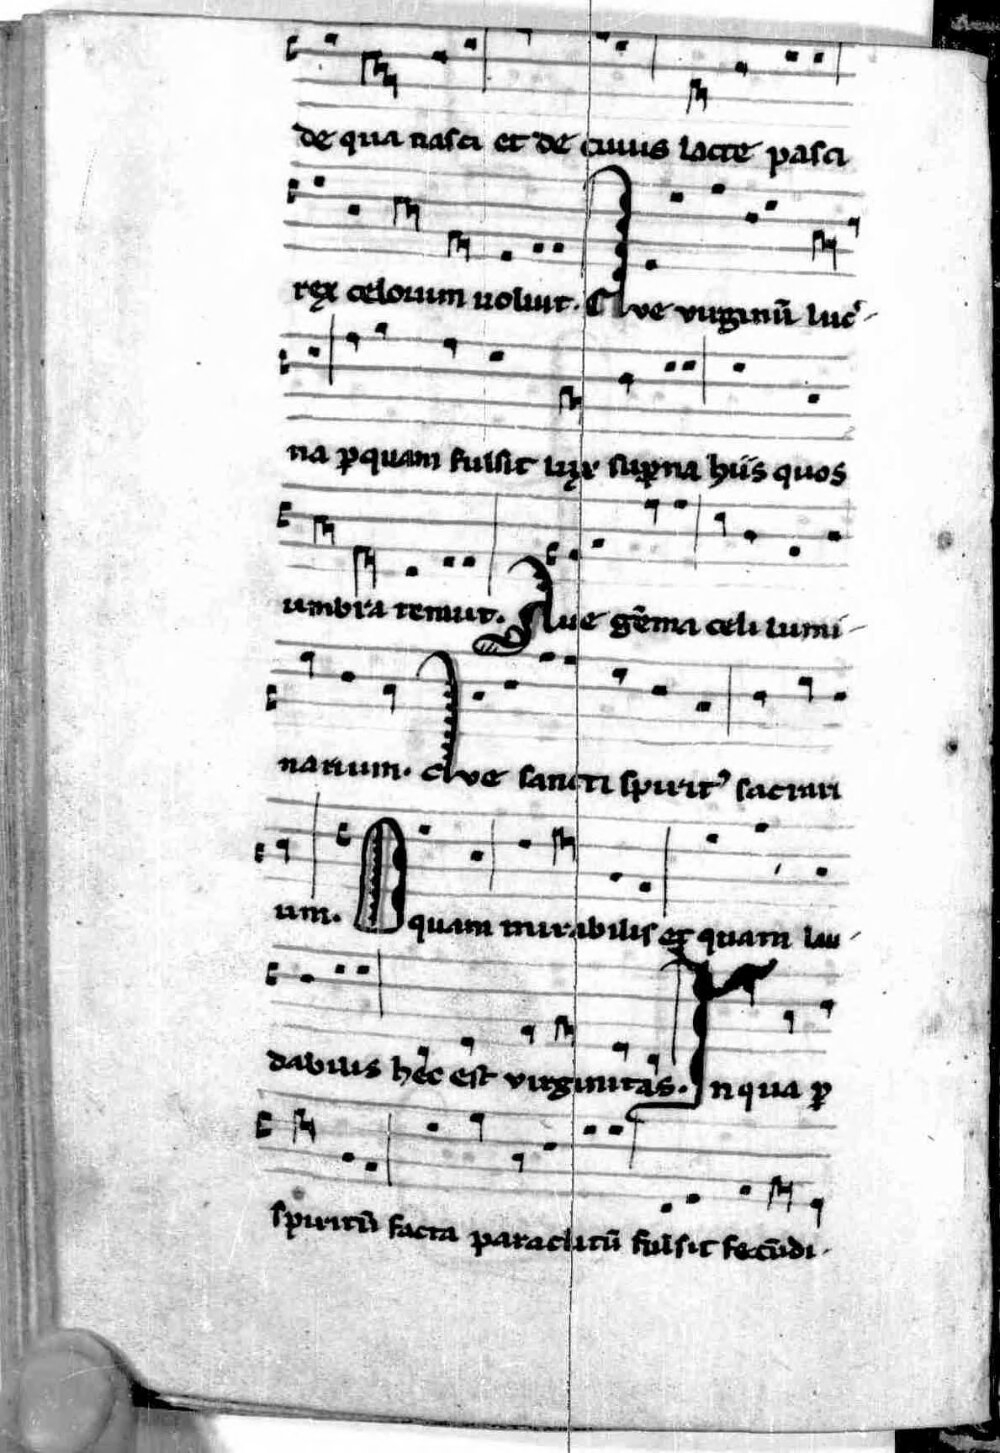 de qua nasci et de cuius lacte pasci
rex celorum uoluit. Aue uirginū luc᷑-
na ꝑ quam fulsit lux suꝑna hiis quos
umbra tenuit. Aue gēma celi lumi-
narium. Aue sancti spiritꝰ sacrari
um. O quam mirabilis et quam lau-
dabilis hec est uirginitas. In qua ꝑ
spiritū facta paraclitū fulsit fecūdi-